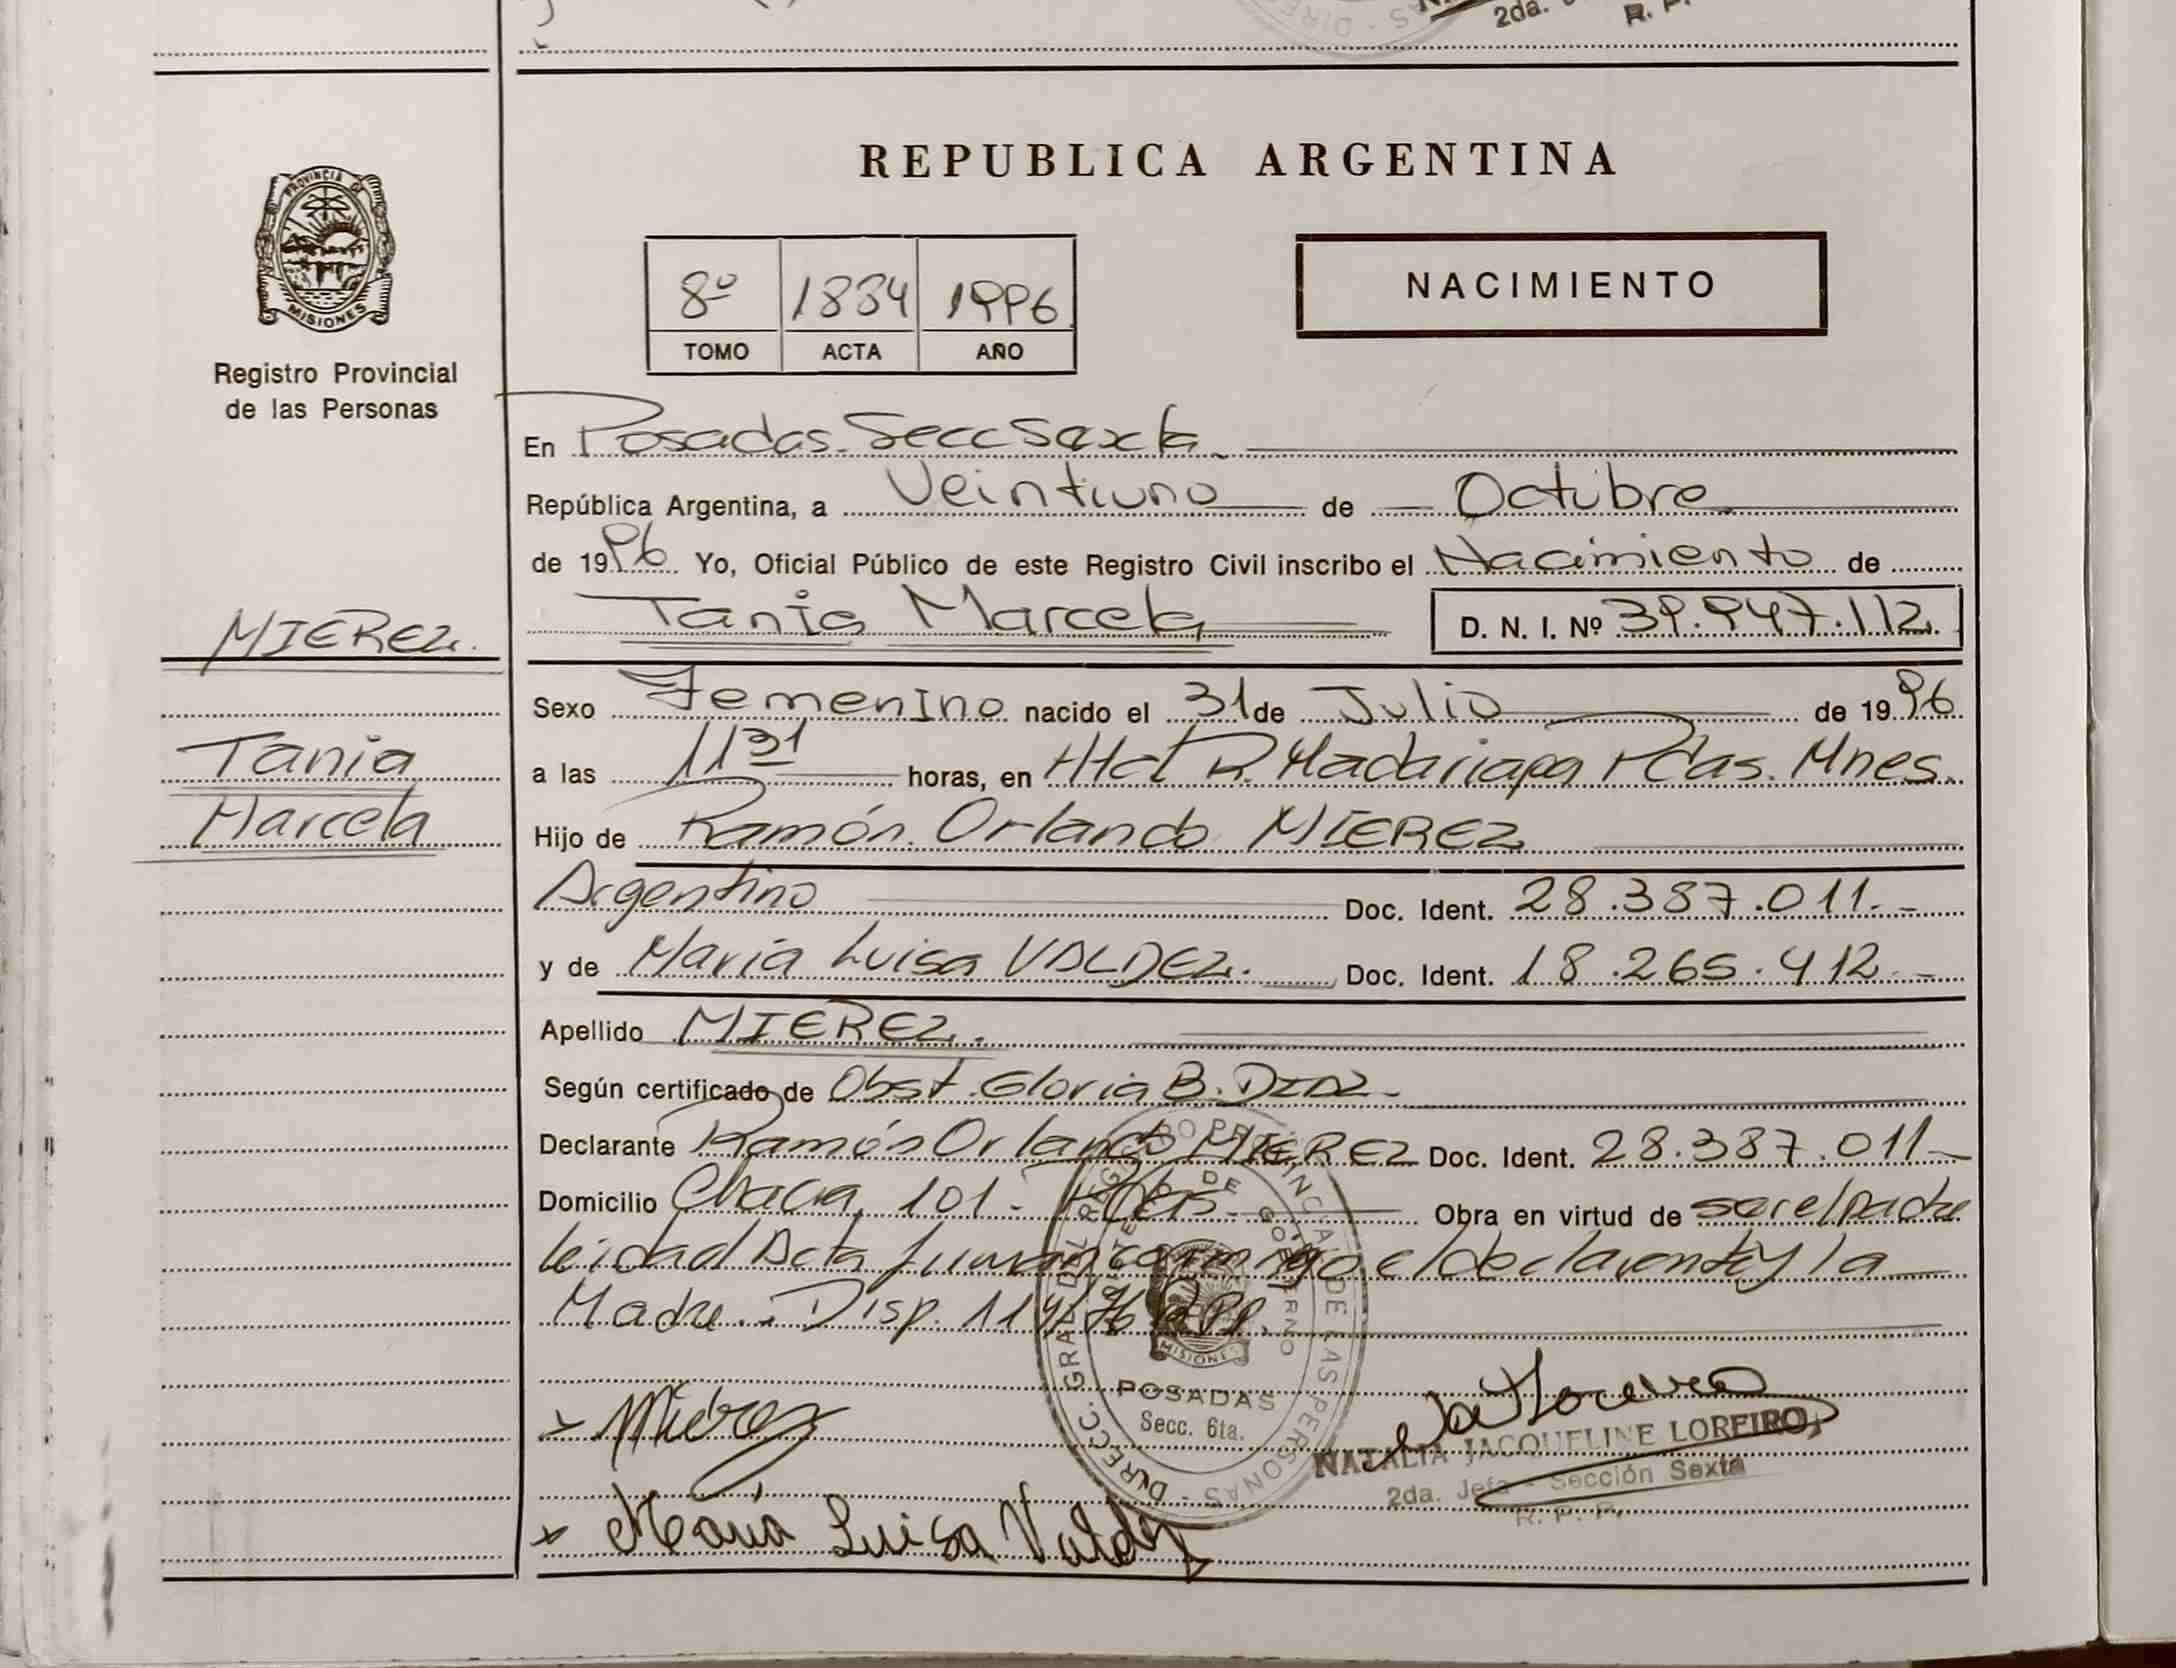 2da.
R. P.
PROVINCIA DE
MISIONES
Registro Provincial
de las Personas
REPUBLICA ARGENTINA
8º 1834 1996
TOMO ACTA AÑO
NACIMIENTO
En Posadas. Secc Sexta
República Argentina, a Veintiuno de Octubre
de 1996 Yo, Oficial Público de este Registro Civil inscribo el Nacimiento de
MIEREZ.
Tania Marcela D. N. I. Nº 39.947.112
Sexo Femenino nacido el 31 de Julio de 1996
Tania
a las 11 31 horas, en Htal R. Madariaga Pdas. Mnes.
Marcela
Hijo de Ramón Orlando MIEREZ
Argentino Doc. Ident. 28.387.011.-
y de María Luisa VALDEZ. Doc. Ident. 18.265.412.-
Apellido MIEREZ.
Según certificado de Obst. Gloria B. DIAZ-
Declarante Ramón Orlando MIEREZ Doc. Ident. 28.387.011-
Domicilio Chacra 101 - Pdas. Obra en virtud de ser el padre
leida el Acta firman conmigo el declarante y la
Madre. Disp. 114/76 RPP.
DIRECC. GRAL DEL REG PROVINCIAL DE LAS PERSONAS
DE GOBIERNO
MISIONES
POSADAS
Secc. 6ta.
Mierez
NATALIA JACQUELINE LOREIRO
2da. Jefa - Sección Sexta
R. P. P.
María Luisa Valdez